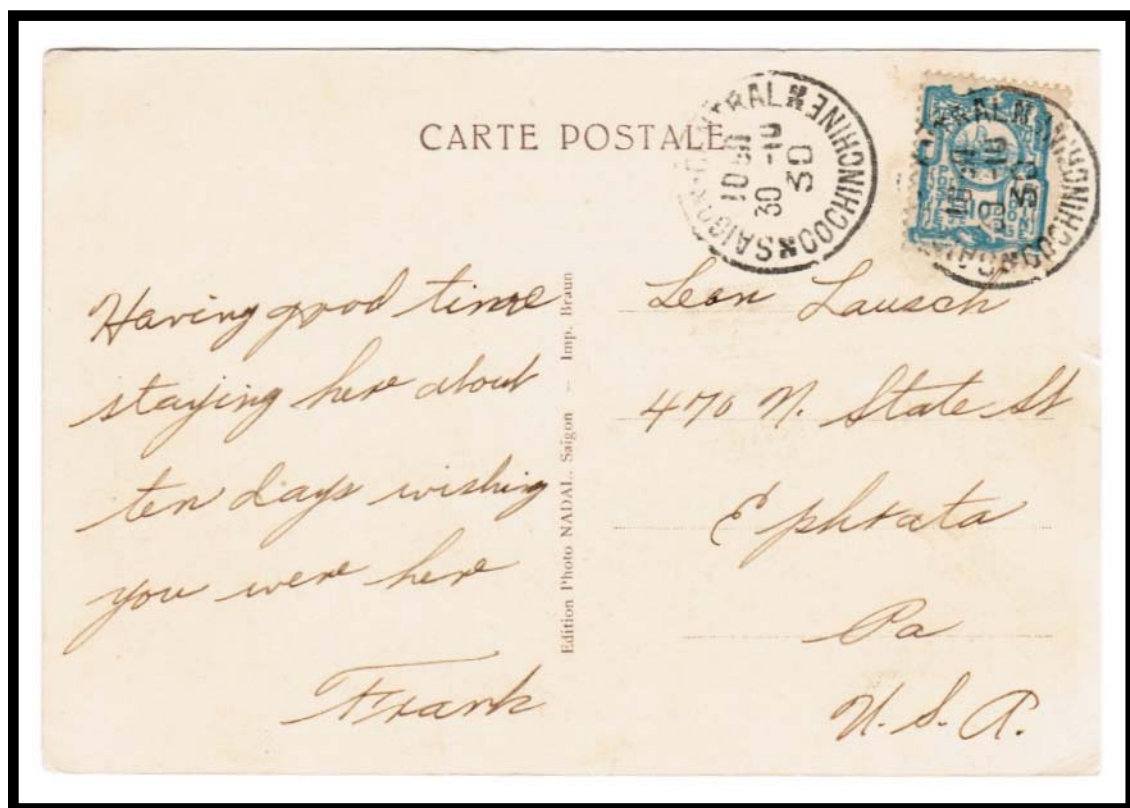 CARTE POSTALE
SAIGON-CENTRAL
COCHINCHINE
10 30
30 -10
30
COCHINCHINE
Having good time
staying here about
ten days wishing
you were here
Frank
Edition Photo NADAL. Saigon — Imp. Braun
Leon Lausch
470 N. State St
Ephrata
Pa
U. S. A.